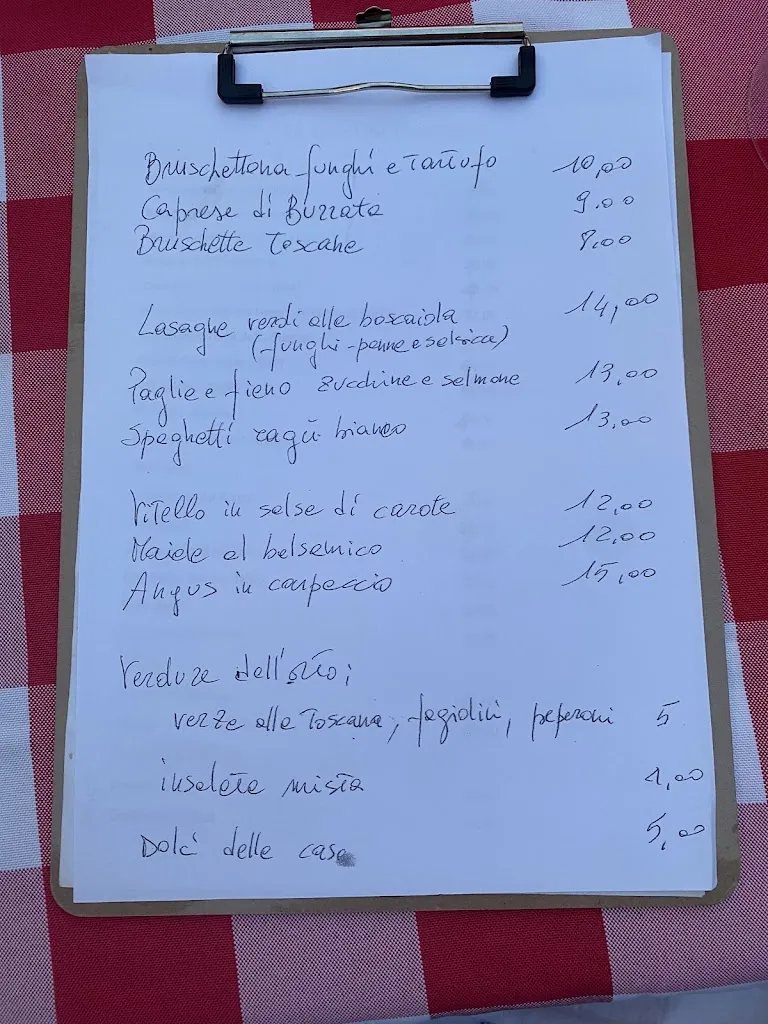 Bruschettona funghi e Tartufo 10,00
Caprese di Burrata 9.00
Bruschette Toscane 8,00
Lasagne verdi alla boscaiola 14,00
(funghi-panna e salsicca)
Paglia e fieno zucchine e salmone 13,00
Spaghetti ragù bianco 13,00
Vitello in salsa di carote 12,00
Maiale al balsamico 12,00
Angus in carpaccio 15,00
Verdure dell'orto:
verze alla Toscana, fagiolini, peperoni 5
insalata mista 4,00
Dolci della casa 5,00